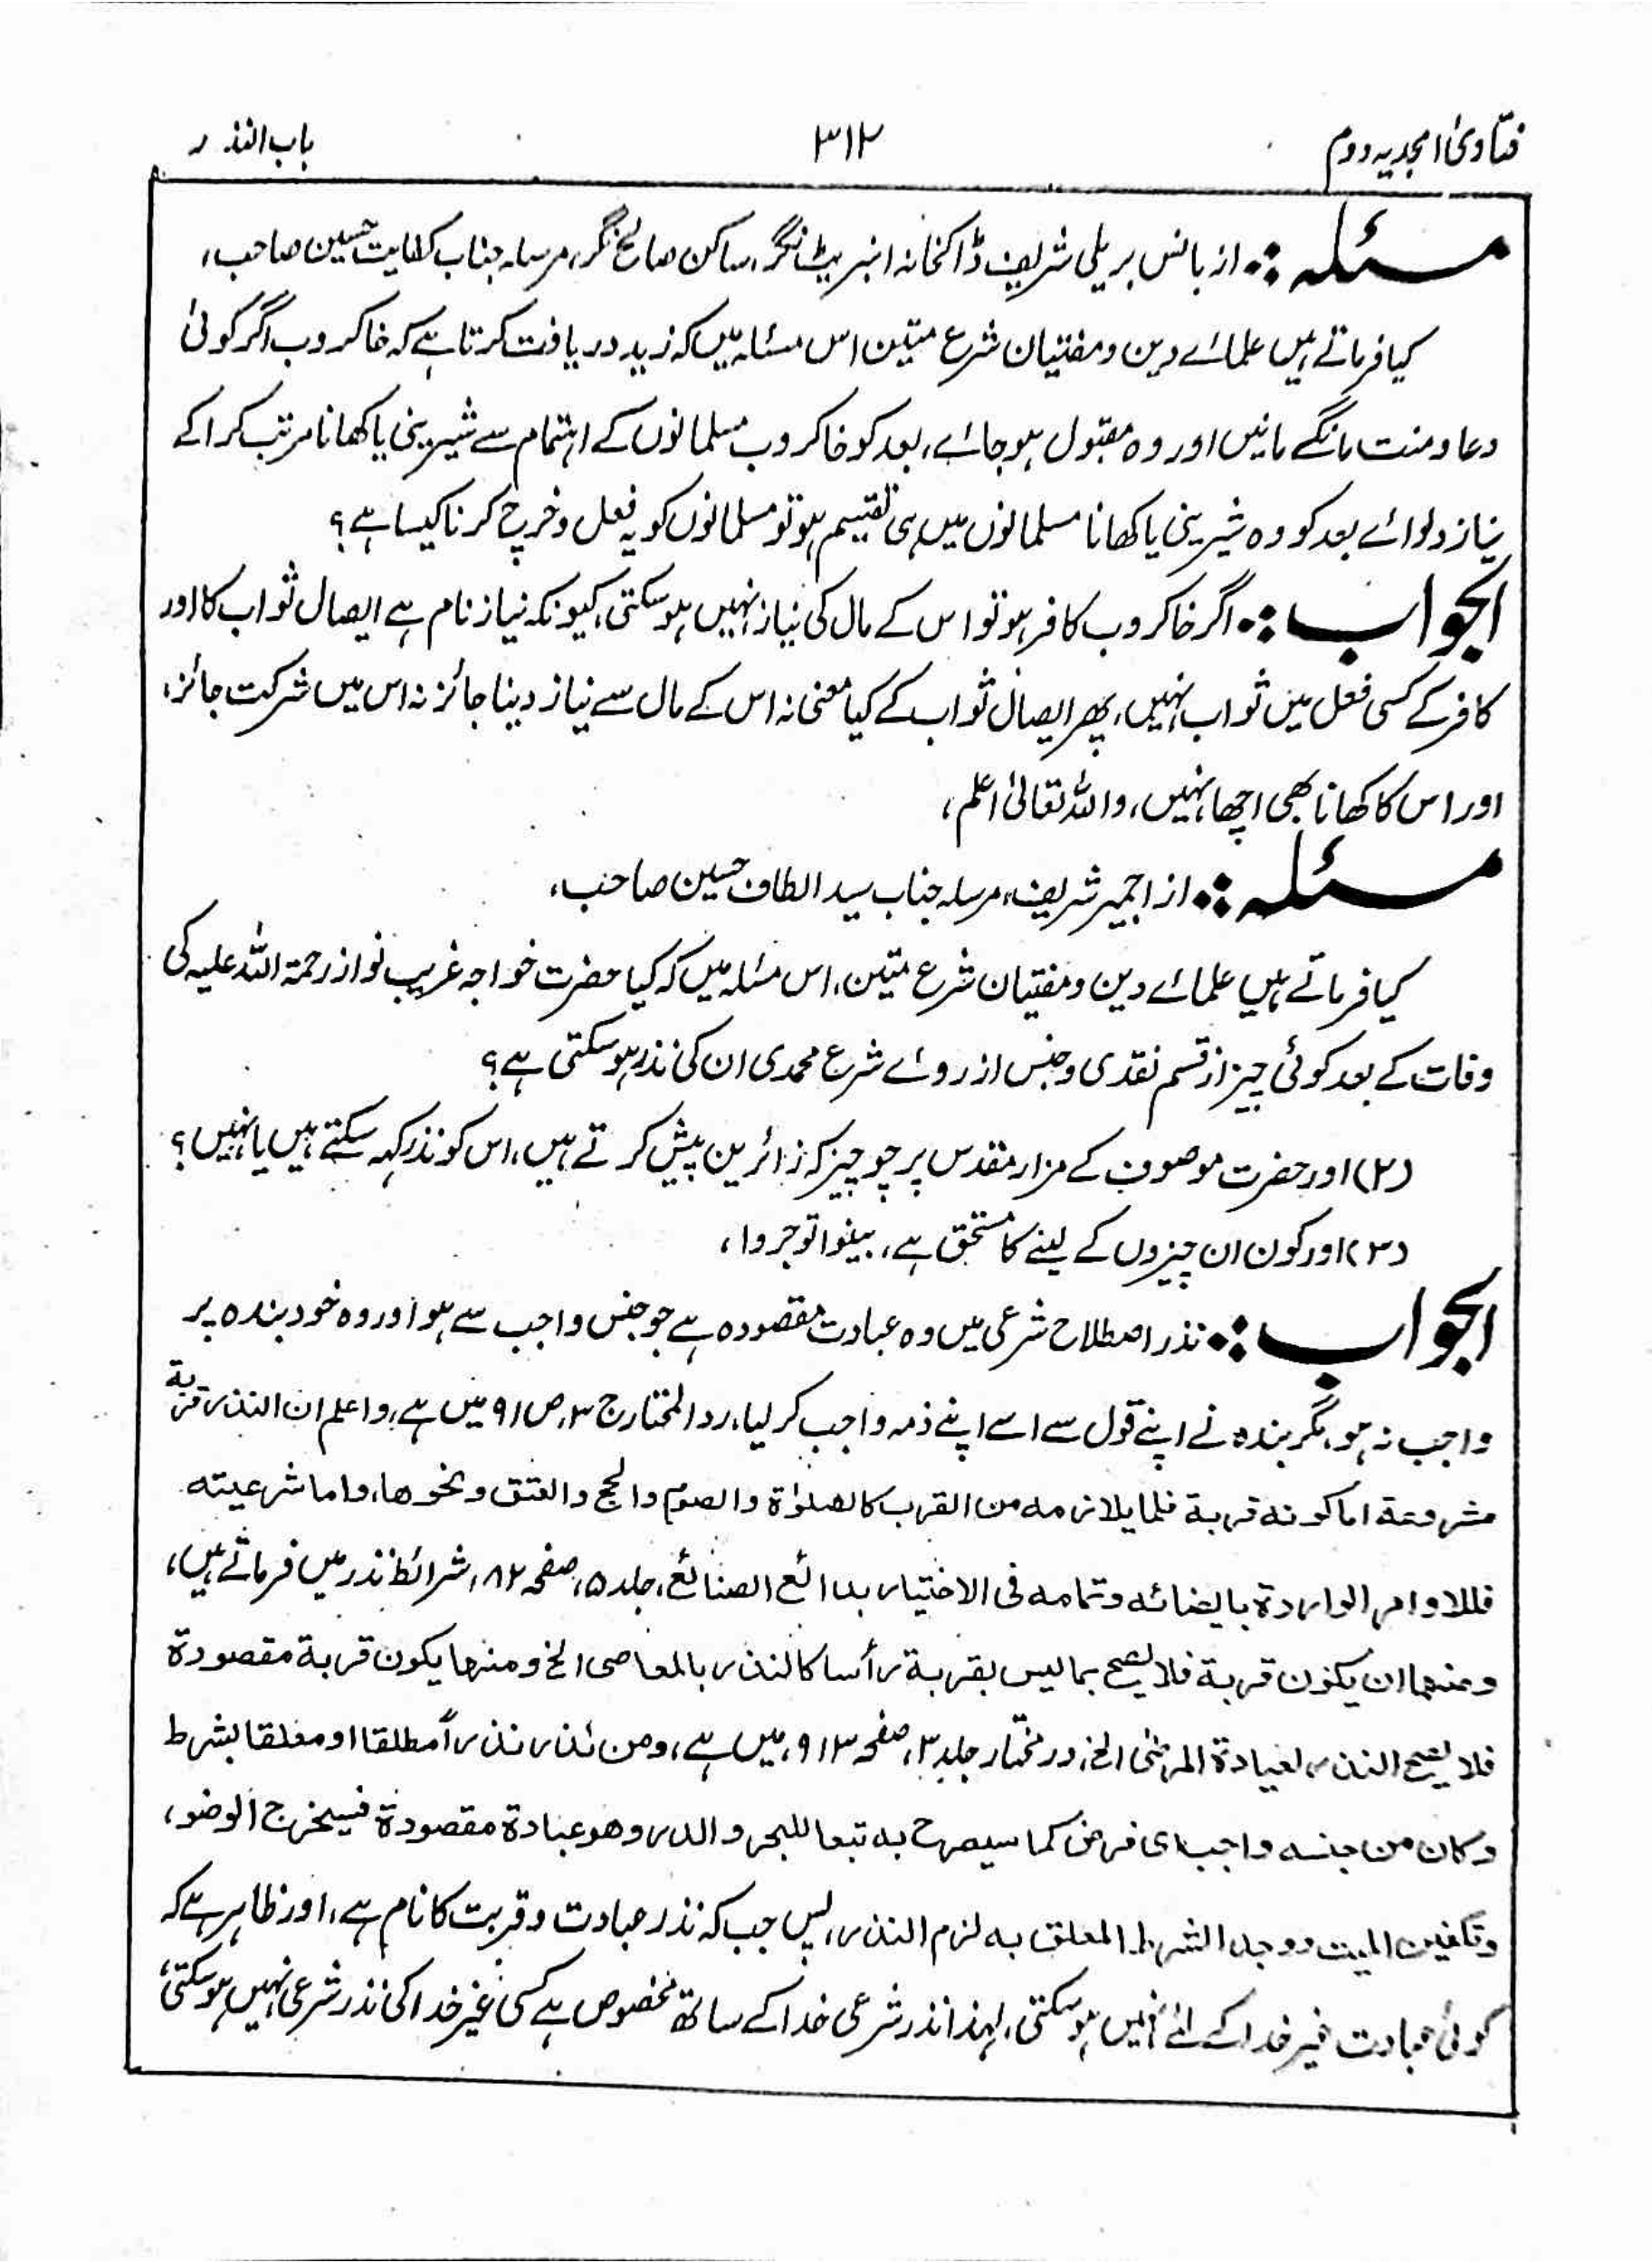 فتاویٰ امجدیہ دوم
۳۱۲
باب النذر
مسئلہ :۔ از بانس بریلی شریف ڈاکخانہ انبر پٹانگر، ساکن صالح نگر، مرسلہ جناب کفایت حسین صاحب،
کیا فرماتے ہیں علمائے دین ومفتیان شرع متین اس مسئلہ میں کہ زید دریافت کرتا ہے کہ خاکروب اگر کوئی
دعا ومنت مانگے مانیں اور وہ مقبول ہوجائے، بعد کو خاکروب مسلمانوں کے اہتمام سے شیرینی یا کھانا مرتب کراکے
نیاز دلوائے بعد کو وہ شیرینی یا کھانا مسلمانوں میں ہی تقسیم ہو تو مسلمانوں کو یہ فعل وخرچ کرنا کیسا ہے؟
الجواب :۔ اگر خاکروب کافر ہو تو اس کے مال کی نیاز نہیں ہوسکتی، کیونکہ نیاز نام ہے ایصال ثواب کا اور
کافر کے کسی فعل میں ثواب نہیں، پھر ایصال ثواب کے کیا معنی نہ اس کے مال سے نیاز دینا جائز نہ اس میں شرکت جائز،
اور اس کا کھانا بھی اچھا نہیں، واللہ تعالیٰ اعلم،
مسئلہ :۔ از اجمیر شریف، مرسلہ جناب سید الطاف حسین صاحب،
کیا فرماتے ہیں علمائے دین ومفتیان شرع متین، اس مسئلہ میں کہ کیا حضرت خواجہ غریب نواز رحمۃ اللہ علیہ کی
وفات کے بعد کوئی چیز از قسم نقدی وجنس از روئے شرع محمدی ان کی نذر ہوسکتی ہے؟
(۲) اور حضرت موصوف کے مزار مقدس پر جو چیز کہ زائرین پیش کرتے ہیں، اس کو نذر کہہ سکتے ہیں یا نہیں؟
(۳) اور کون ان چیزوں کے لینے کا مستحق ہے، بینوا توجروا،
الجواب :۔ نذر اصطلاح شرعی میں وہ عبادت مقصودہ ہے جو جنس واجب سے ہو اور وہ خود بندہ پر
واجب نہ ہو، مگر بندہ نے اپنے قول سے اسے اپنے ذمہ واجب کرلیا، ردالمختار ج ۳، ص ۹۱ میں ہے، واعلم ان النذر قربة
مشروعة اما کونه قربة فلما یلازمه من القرب کالصلوٰة والصوم والحج والعتق ونحوها، واما شرعیته
فللاوامر الواردة بایضائه وتمامه فی الاختیار بدائع الصنائع، جلد ۵، صفحہ ۸۲، شرائط نذر میں فرماتے ہیں،
ومنها ان یکون قربة فلا یصح بما لیس بقربة رأسا کالنذر بالمعاصی الخ ومنها یکون قربة مقصودة
فلا یصح النذر لعیادة المرضی الخ، درمختار جلد ۳، صفحہ ۹۱۳، میں ہے، ومن نذر نذراً مطلقا او معلقا بشرط
وکان من جنسه واجب ای فرض کما سیصرح به تبعا للبحر والدرر وهو عبادة مقصودة فیخرج الوضو،
وتکفین المیت ووجد الشرط المعلق به لزم النذر، پس جب کہ نذر عبادت وقربت کا نام ہے، اور ظاہر ہے کہ
کوئی عبادت غیر خدا کے لئے نہیں ہوسکتی، لہذا نذر شرعی خدا کے ساتھ مخصوص ہے کسی غیر خدا کی نذر شرعی نہیں ہوسکتی،